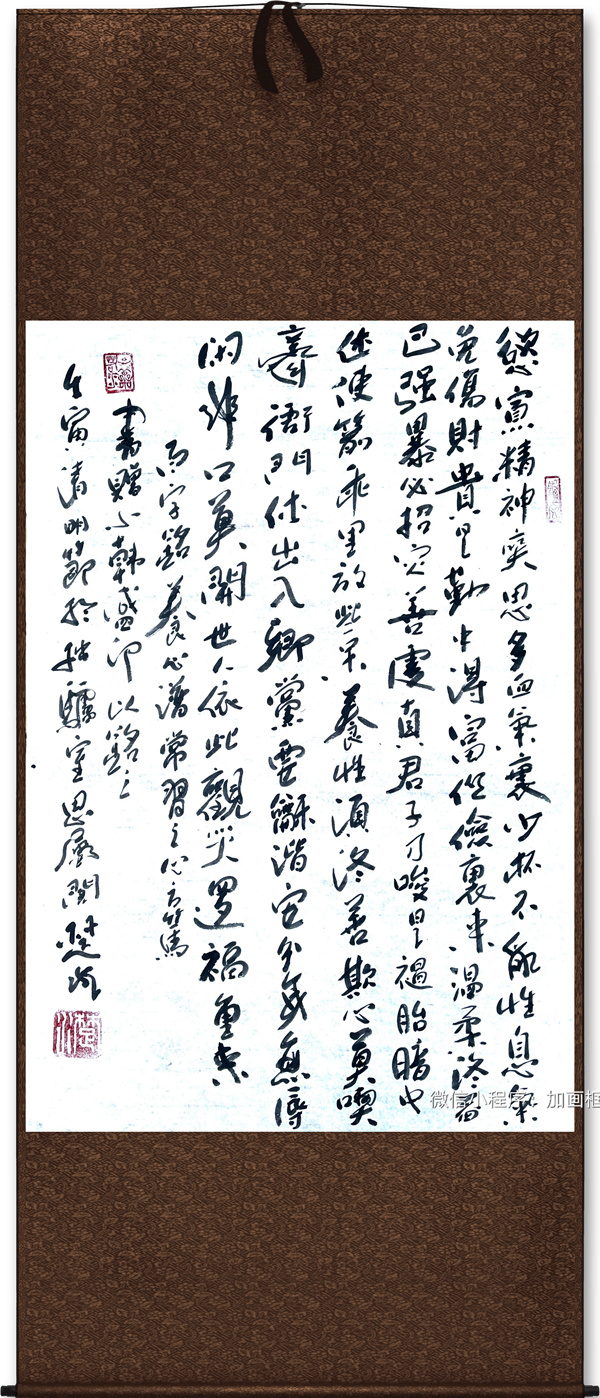 慾寡精神爽思多血氣衰少杯不亂性忍氣
免傷財貴自勤中得富從儉裏來温柔終益
己强暴必招災善處真君子刁唆是禍胎暗中
休使箭乖里放些呆養性須修善欺心莫喫
齋衙門休出入鄉黨要龢諧安分身無辱
閑非口莫開世人依此觀災退福重來
百字銘養心譜常習之心
書贈小韓盛印以銘之
壬寅清明節於拙驢室
微信小程序：加画框